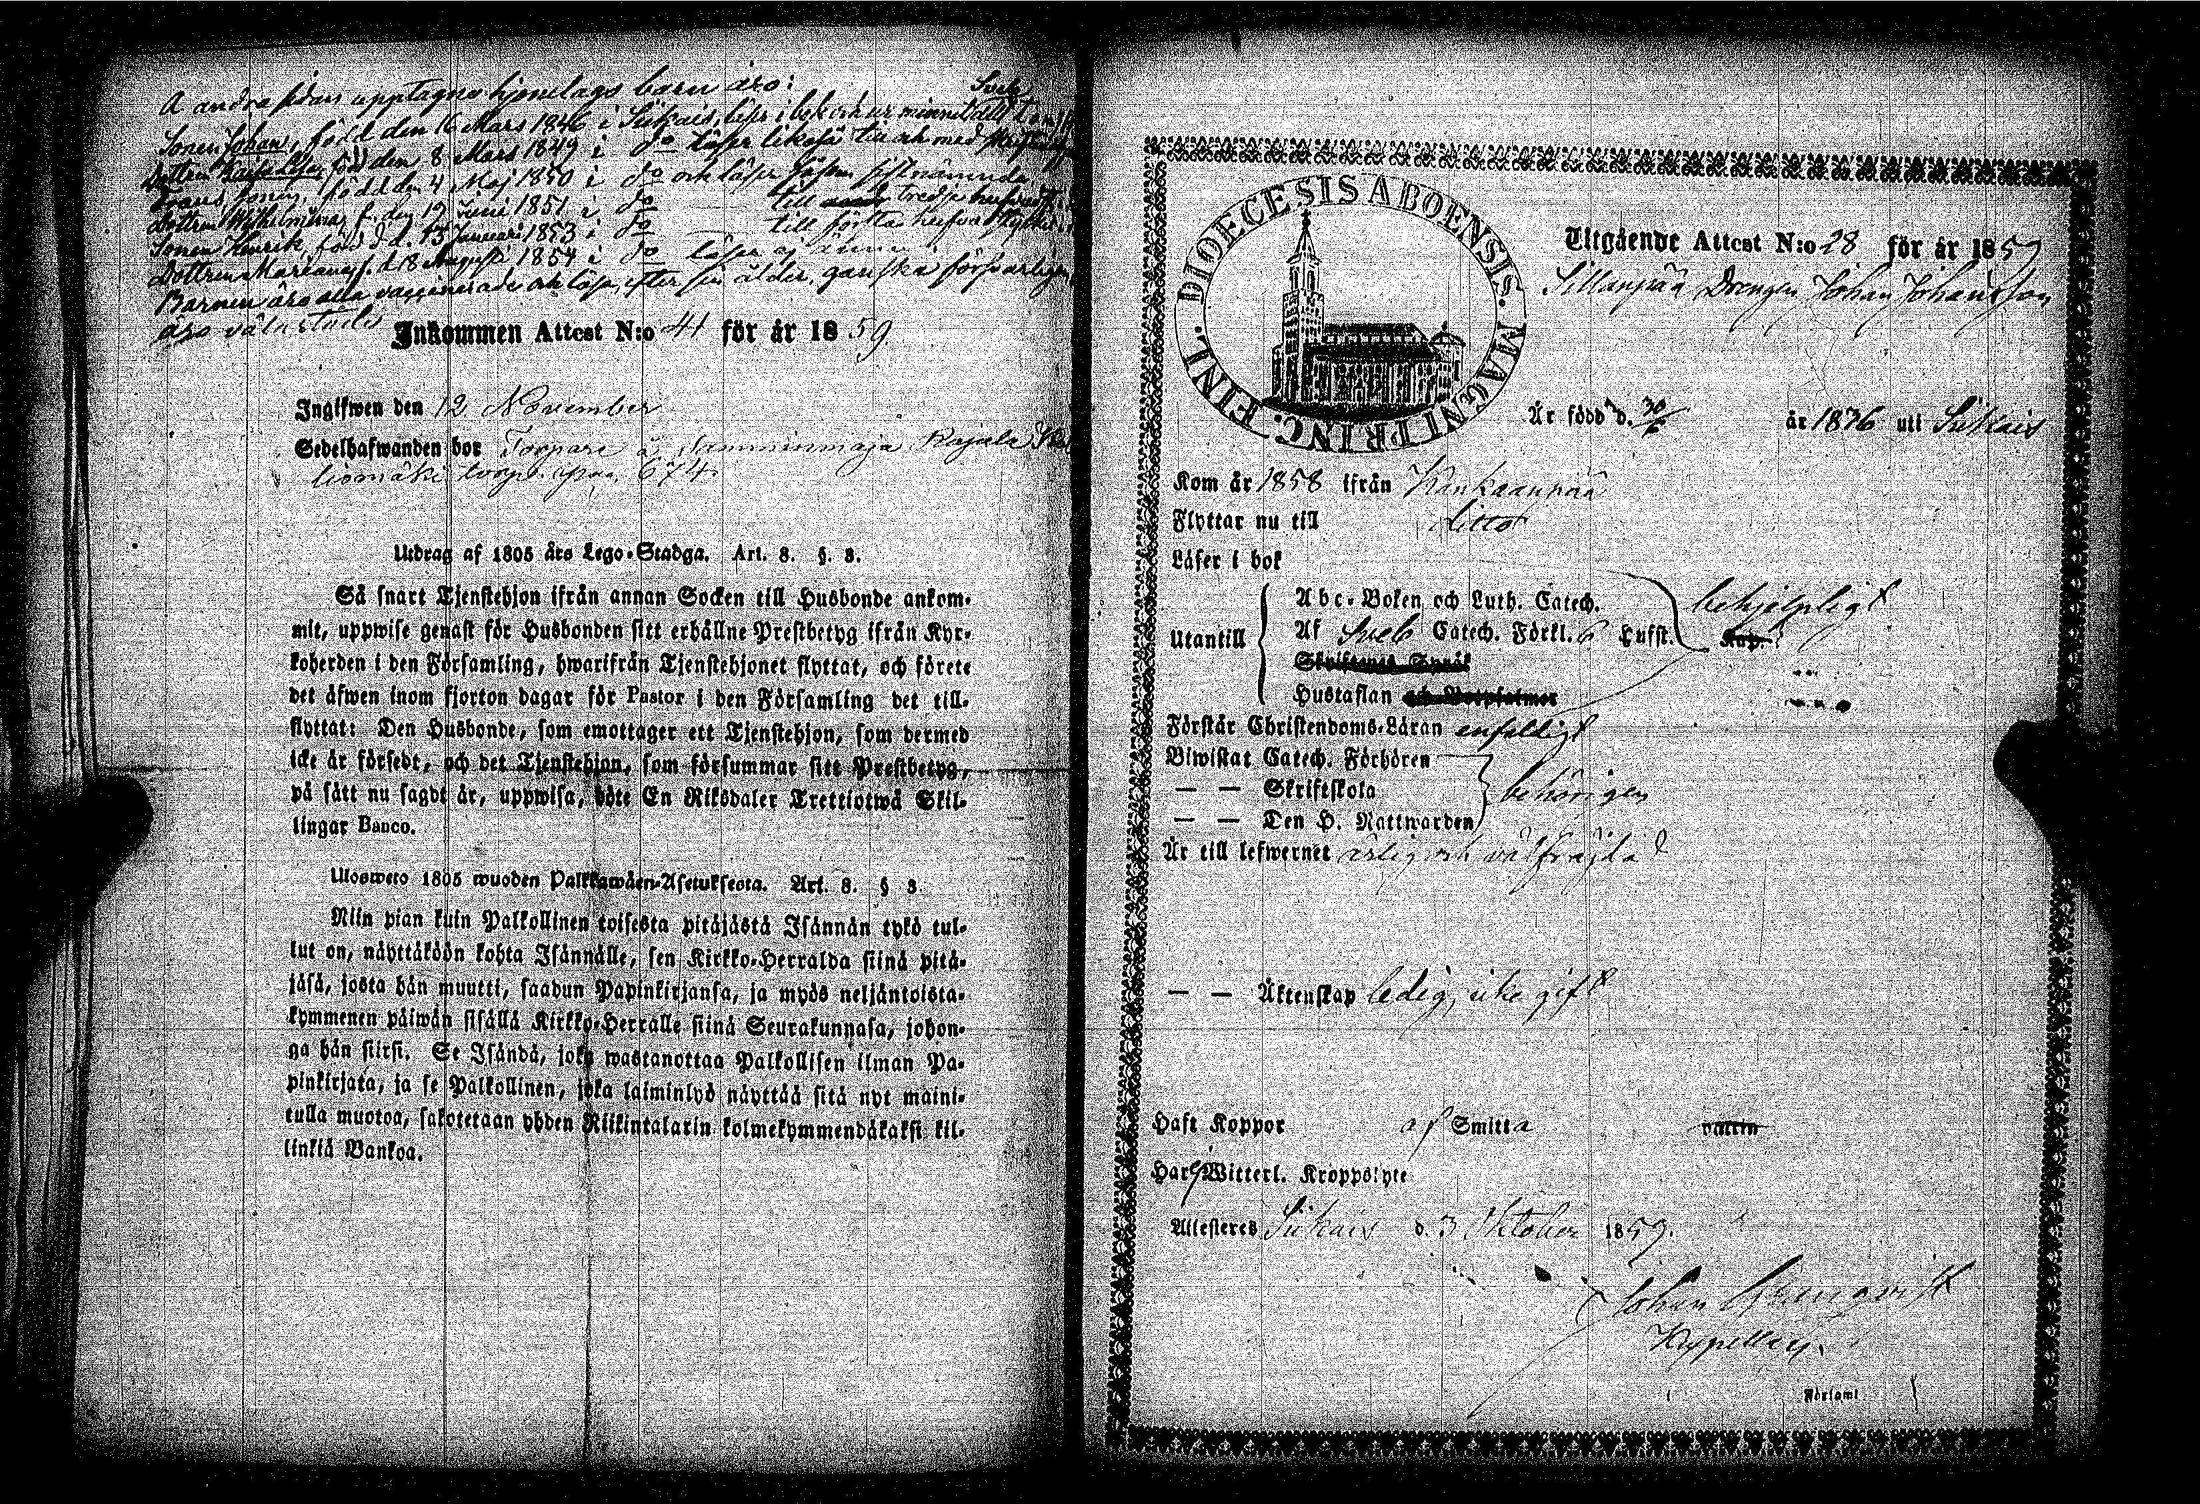 A andra sidan upptagne hjonelags barn äro:
Sonen Johan, född den 16 Mars 1846 i Siikais, läser i bok och ur minnet
Dottren född den 8 Mars 1849 i do läser likaså
Frans, sonen, född den 4 Maj 1850 i do och läser
Dottren Wilhelmina, f. den 19 Juni 1851 i do till tredje
Sonen Henrik, född d. 13 Januari 1853 i do till första
Dottren Mariana, f. d. 18 Augusti 1854 i do läser ej ännu
Barnen äro alla vaccinerade och läsa, efter sin ålder, ganska försvarligen,
äro väl
Inkommen Attest N:o 41 för år 1859
Ingifwen den 12 November
Sedelhafwanden bor Torpare å Rajala
torp. pag. 674.
Utdrag af 1805 års Lego-Stadga. Art. 8. §. 3.
Så snart Tjenstehjon ifrån annan Socken till Husbonde ankom-
mit, uppwise genast för Husbonden sitt erhållne Prestbetyg ifrån Kyr-
koherden i den Församling, hwarifrån Tjenstehjonet flyttat, och förete
det äfwen inom fjorton dagar för Pastor i den Församling det till-
flyttat: Den Husbonde, som emottager ett Tjenstehjon, som dermed
icke är försedt, och det Tjenstehjon, som försummar sitt Prestbetyg,
på sätt nu sagdt är, uppwisa, böte En Riksdaler Trettiotwå Skil-
lingar Banco.
Ulosweto 1805 wuoden Palkkawäen-Asetuksesta. Art. 8. § 3.
Niin pian kuin Palkollinen toisesta pitäjästä Isännän tykö tul-
lut on, näyttäköön kohta Isännälle, sen Kirkko-Herralda siinä pitä-
jäsä, josta hän muutti, saadun Papinkirjansa, ja myös neljäntoista-
kymmenen päiwän sisällä Kirkko-Herralle siinä Seurakunnasa, johon-
ga hän siirsi. Se Isändä, joka wastanottaa Palkollisen ilman Pa-
pinkirjata, ja se Palkollinen, joka laiminlyö näyttää sitä nyt maini-
tulla muotoa, sakotetaan yhden Riikintalarin kolmekymmendäkaksi kil-
linkiä Bankoa.
DIOECESIS ABOENSIS. MAGNI PRINC. FINL.
Utgående Attest N:o 28 för år 1859
Sillanpää Drengen Johan Johansson
Är född d. 30/ år 1836 uti Siikais
Kom år 1858 ifrån Kankaanpää
Flyttar nu till ditto
Läser i bok
Utantill
Abc-Boken och Luth. Catech. behjelpligt
Af Sveb Catech. Förkl. 6 Lufst. Kap.
Skriftenes Språk
Hustaflan och Botpsalmer
Förstår Christendoms-Läran enfaldigt
Biwistat Catech. Förhören
— — Skriftskola behörigen
— — Den H. Nattwarden
Är till lefwernet ärlig och välfrejdad
— — Äktenskap ledig, icke gift
Haft Koppor af Smitta
Har ej Witterl. Kroppslyte
Attesteras Siikais d. 3 Oktober 1859.
Johan
Kapellan.
Församl.